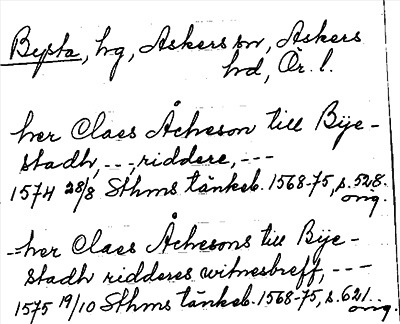 Bysta, hg, Askers sn, Askers
hd, Ör. l.
her Claes Åcheson till Bije-
stadh, ---, riddere, ---
1574 28/8 Sthms tänkeb. 1568-75, s. 528.
orig.
-her Claes Åchesons till Bije-
stadh ridderes witnesbreff, ---
1575 19/10 Sthms tänkeb. 1568-75, s. 621.
orig.